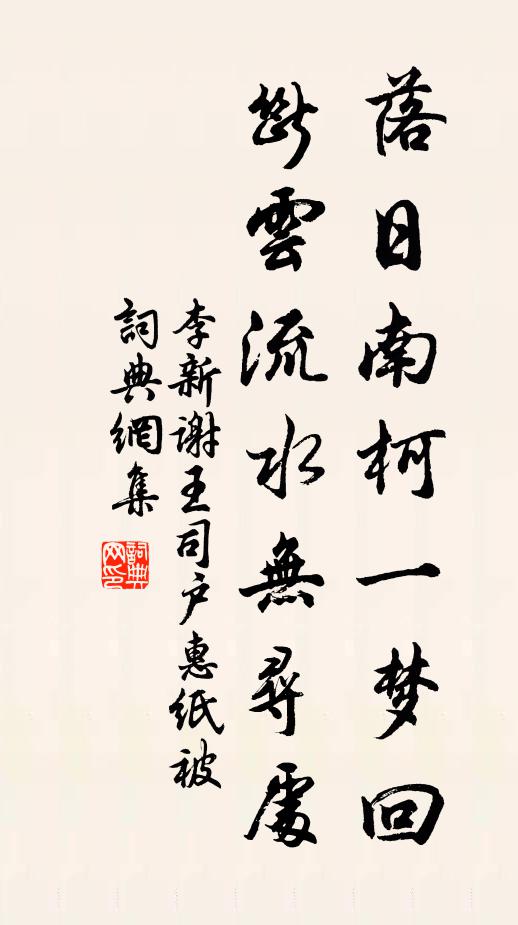 落日南柯一梦回
斷雲流水無尋處
李新謝王司户惠紙被
詞典網集
詞典网印